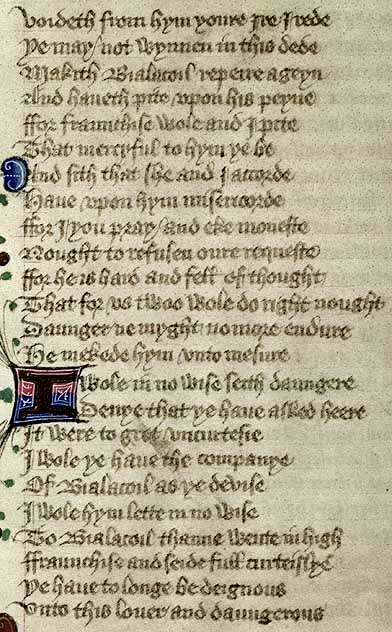 Voideth from hym youre Ire I rede
Ye may not wynnen in this dede
Makith Bialacoil repeire ageyn
And haueth pite vpon his peyne
ffor fraunchise wole and I pite
That merciful to hym ye be
And sith that she and I accorde
Haue vpon hym misericorde
ffor I you pray and eke moneste
Nought to refusen oure requeste
ffor he is hard and fell of thought
That for vs twoo wole do right nought
Daunger ne myght no more endure
He mekede hym vnto mesure
I wole in no wise seith daungere
Denye that ye haue asked heere
It were to gret vncurtesie
I wole ye haue the companye
Of Bialacoil as ye devise
I wole hym lette in no wise
To Bialacoil thanne wente in high
ffraunchise and seide full curteislye
Ye haue to longe be deignous
Vnto this louer and daungerous